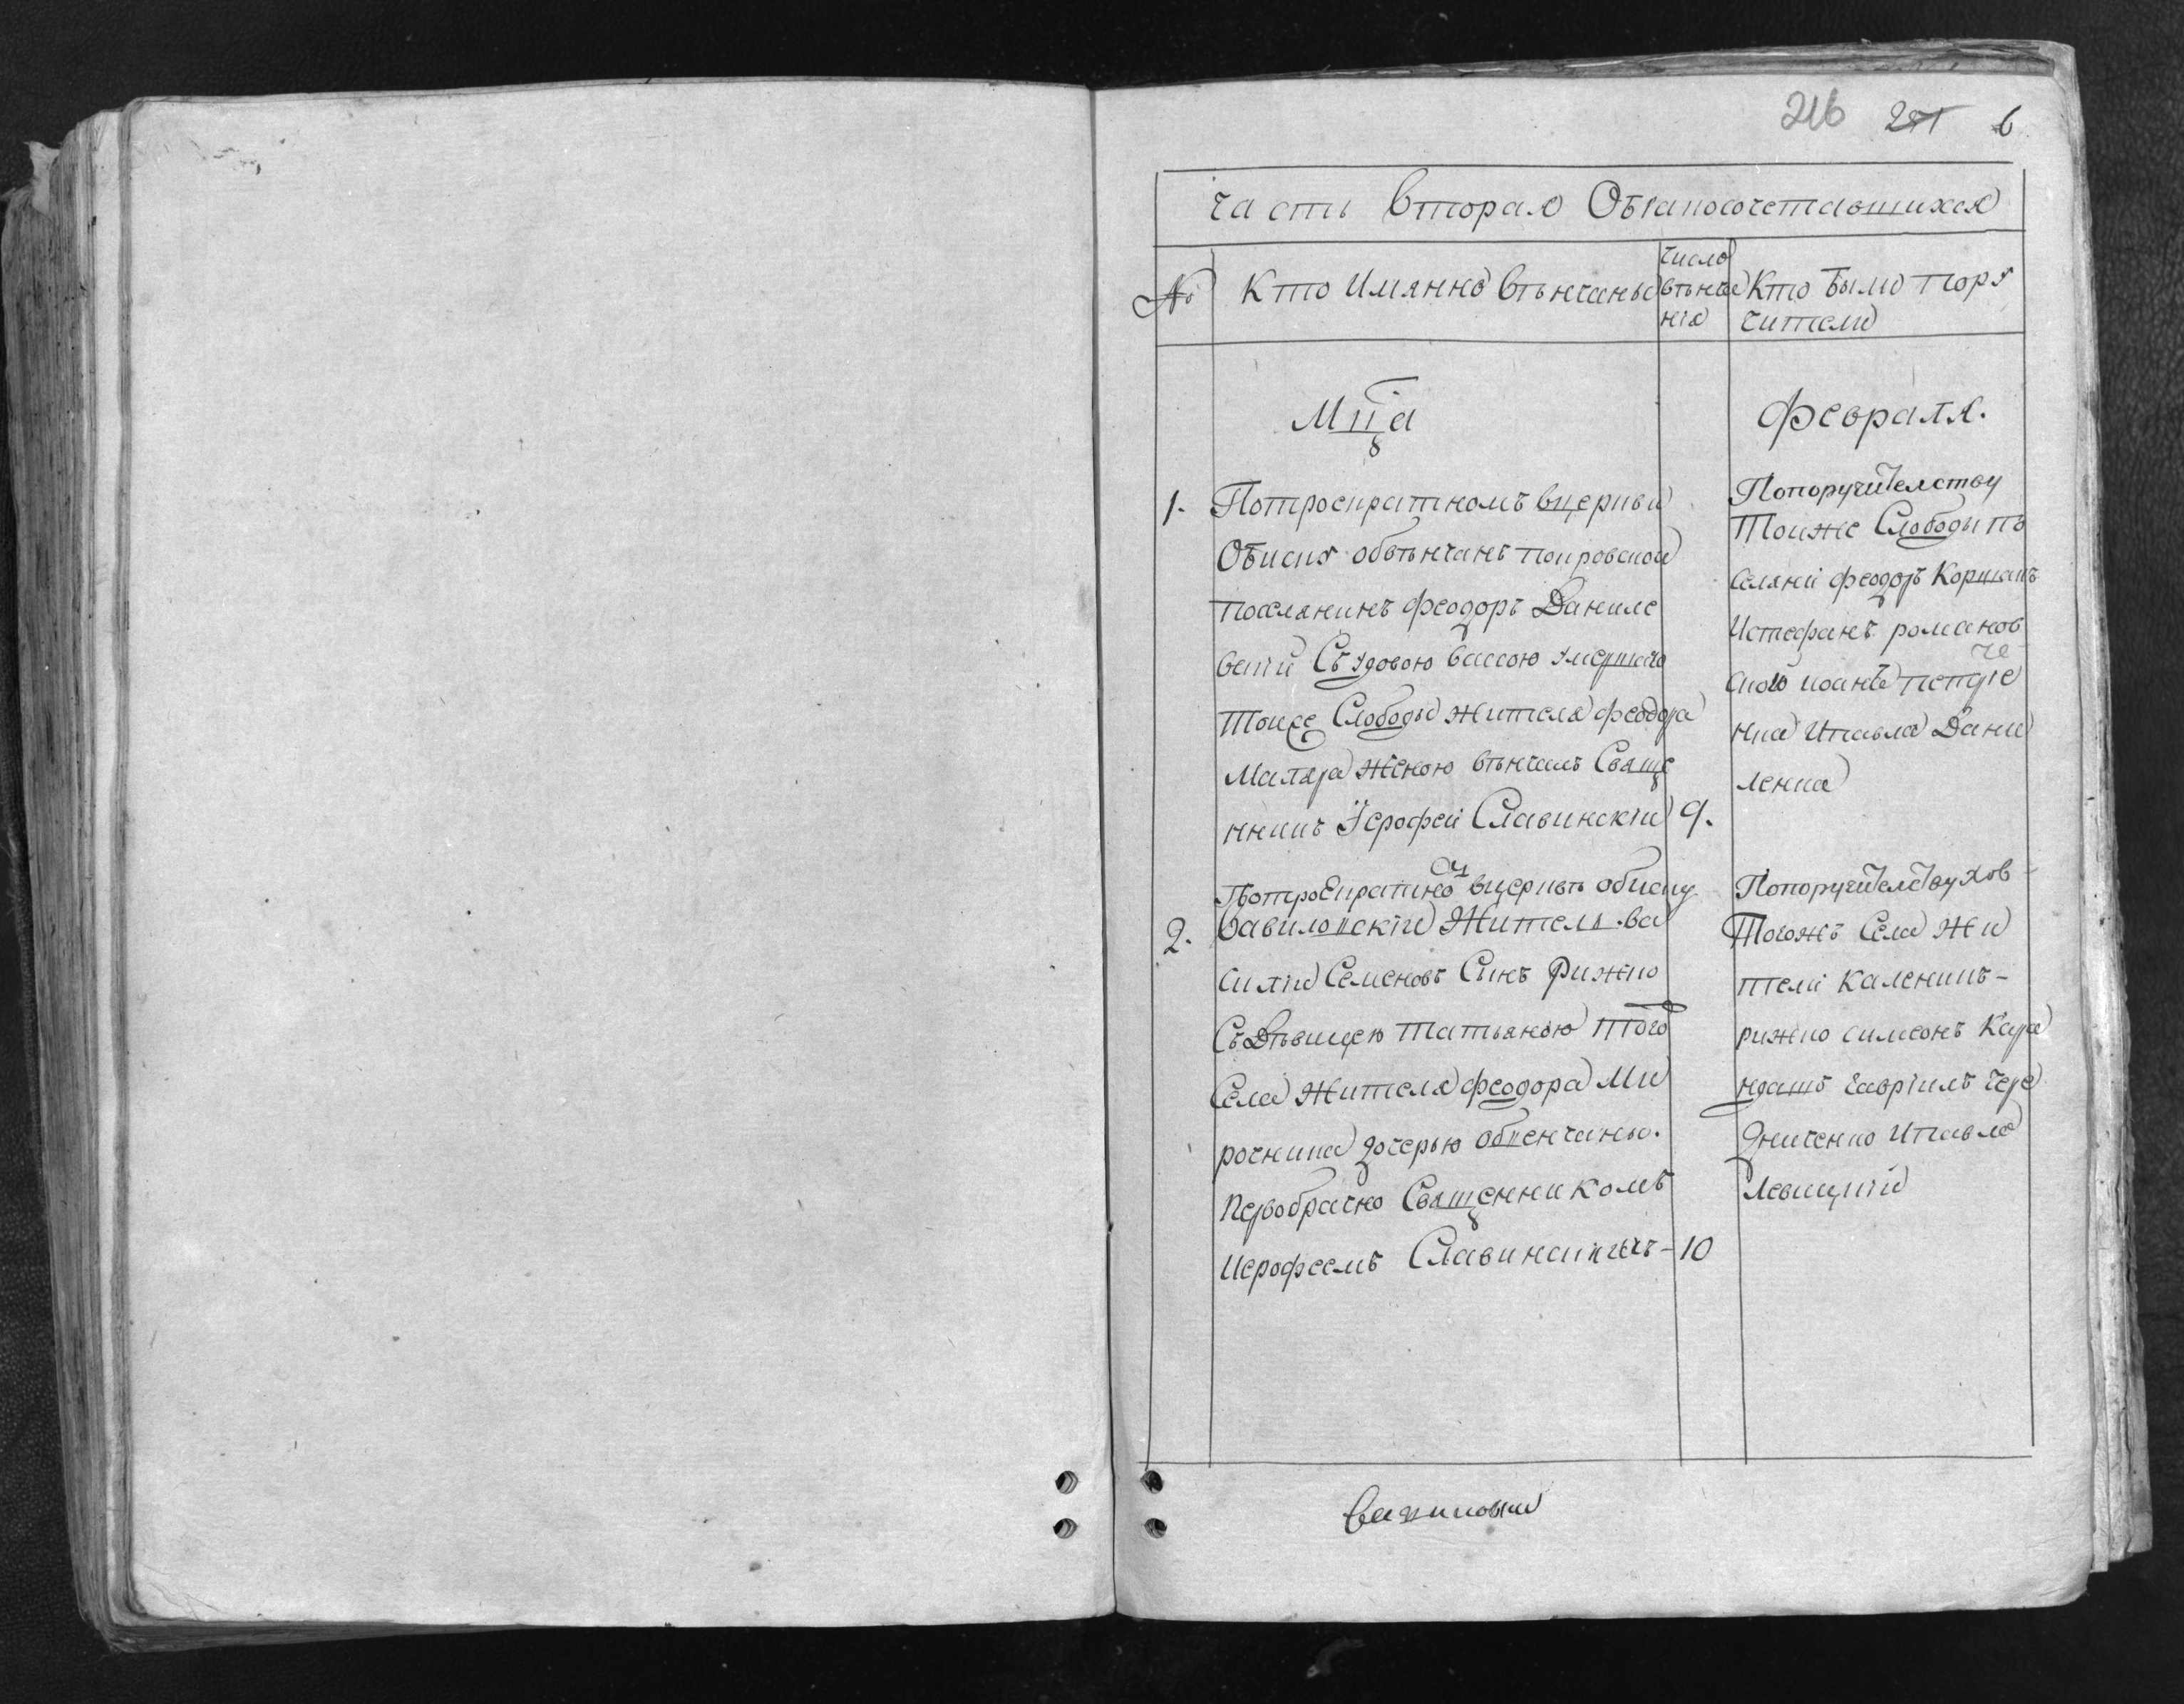 216 271 6
Часть вторая Обракосочетавшихся
№ Кто Имянно Вѣнчаны
число вѣнча нія
Кто были пору чители
Мца Февраля.
1. Потроекратномъ вцеркви
Обиску обвѣнчанъ покровской
поселянинъ Феодоръ Даниле
вский Съ удовою вассою умершаго
Тоияже Слободы жителя Феодора
Маляра женою вѣнчалъ Свяще
нникъ Іерофей Славинскій 9.
Попоручителству
Тоиже Слободы по
селяни Феодоръ Коршакъ
Истефанъ романов
ской иоанъ петре
нка Ипавла Дани
ленка
2. Потроекратном вцерквѣ обиску
Вавиловскій Житель Ва
силій Семеновъ Синъ Рижко
Съ Дѣвицею Татьяною Того
Села Жителя Феодора Ми
рочника дочерью обвенчаны.
Первобрачно Священникомъ
Иерофеемъ Славинскимъ - 10
Попоручителству
Тогожъ Села Жи
тели Каленикъ -
рижко симеонъ Кара
ндашъ Гавріилъ Чере
дниченко Ипавла
Левицкій